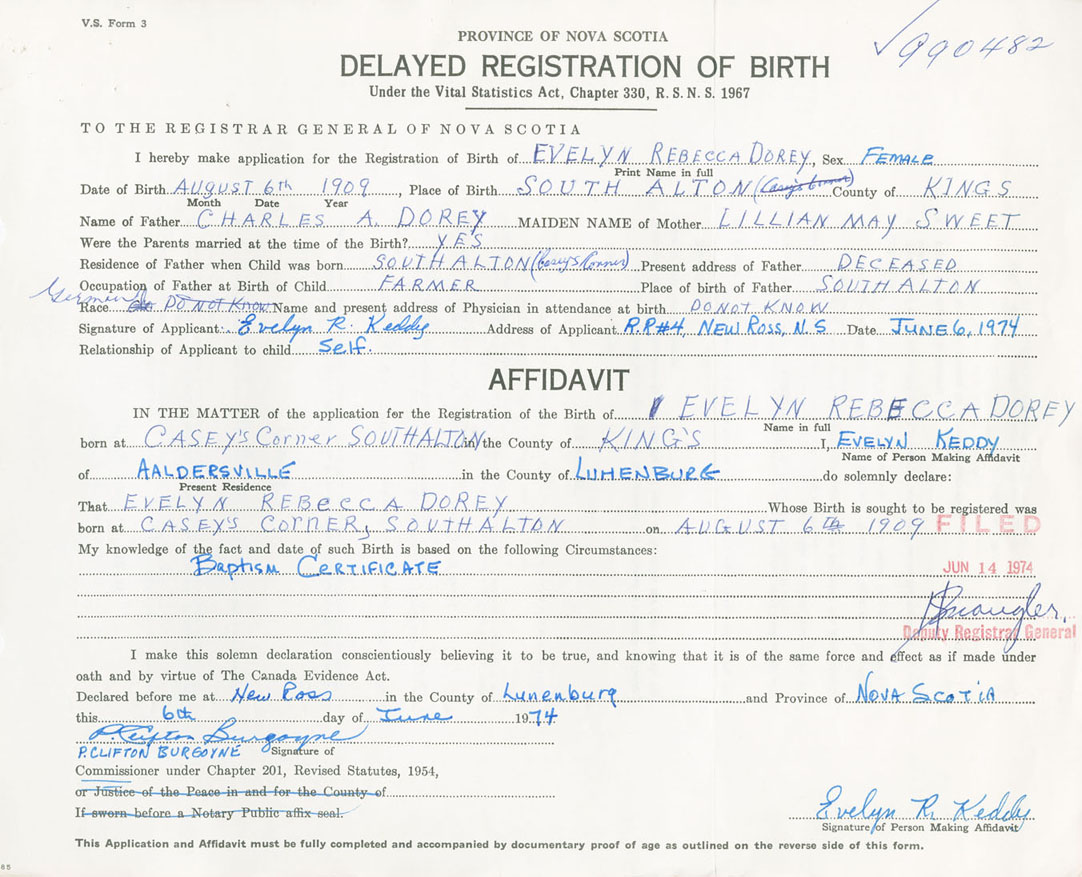 V.S. Form 3
PROVINCE OF NOVA SCOTIA
✓990482
DELAYED REGISTRATION OF BIRTH
Under the Vital Statistics Act, Chapter 330, R. S. N. S. 1967
TO THE REGISTRAR GENERAL OF NOVA SCOTIA
I hereby make application for the Registration of Birth of EVELYN REBECCA DOREY, Sex FEMALE
Print Name in full
Date of Birth AUGUST 6th 1909, Place of Birth SOUTH ALTON (Casey's Corner) County of KINGS
Month Date Year
Name of Father CHARLES A. DOREY MAIDEN NAME of Mother LILLIAN MAY SWEET
Were the Parents married at the time of the Birth? YES
Residence of Father when Child was born SOUTH ALTON (Casey's Corner) Present address of Father DECEASED
Occupation of Father at Birth of Child FARMER Place of birth of Father SOUTH ALTON
German
Race DO NOT KNOW Name and present address of Physician in attendance at birth DO NOT KNOW
Signature of Applicant: Evelyn R. Keddy Address of Applicant R.R#4, NEW ROSS, N.S Date JUNE 6, 1974
Relationship of Applicant to child Self.
AFFIDAVIT
IN THE MATTER of the application for the Registration of the Birth of EVELYN REBECCA DOREY
Name in full
born at CASEY'S Corner SOUTH ALTON in the County of KING'S I, EVELYN KEDDY
Name of Person Making Affidavit
of AALDERSVILLE in the County of LUNENBURG do solemnly declare:
Present Residence
That EVELYN REBECCA DOREY Whose Birth is sought to be registered was
born at CASEY'S CORNER, SOUTH ALTON on AUGUST 6th 1909 FILED
My knowledge of the fact and date of such Birth is based on the following Circumstances:
Baptism CERTIFICATE JUN 14 1974
Deputy Registrar General
I make this solemn declaration conscientiously believing it to be true, and knowing that it is of the same force and effect as if made under
oath and by virtue of The Canada Evidence Act.
Declared before me at New Ross in the County of Lunenburg and Province of NOVA SCOTIA
this 6th day of June 1974
P. Clifton Burgoyne
P. CLIFTON BURGOYNE Signature of
Commissioner under Chapter 201, Revised Statutes, 1954,
or Justice of the Peace in and for the County of
If sworn before a Notary Public affix seal.
Evelyn R. Keddy
Signature of Person Making Affidavit
This Application and Affidavit must be fully completed and accompanied by documentary proof of age as outlined on the reverse side of this form.
65